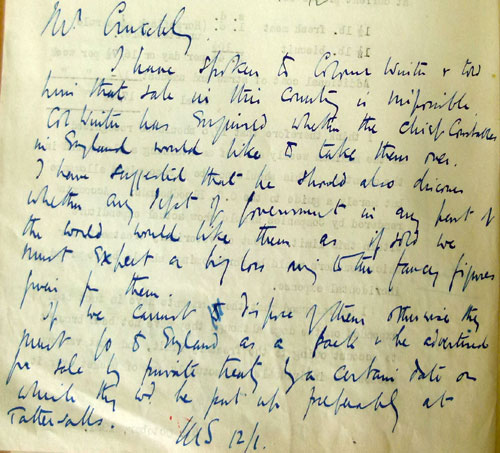 Mr Crutchley
I have spoken to Colonel Winter & told
him that sale in this country is impossible
Col Winter has enquired whether the Chief Constables
in England would like to take them over.
I have suggested that he should also discover
whether any Dept of Government in any part of
the world would like them as if sold we
must expect a big loss owing to the fancy figures
given for them.
If we cannot dispose of them otherwise they
must go to England as a pack & be advertised
for sale by private treaty by a certain date on
which they wd be put up preferably at
Tattersalls.
12/1.